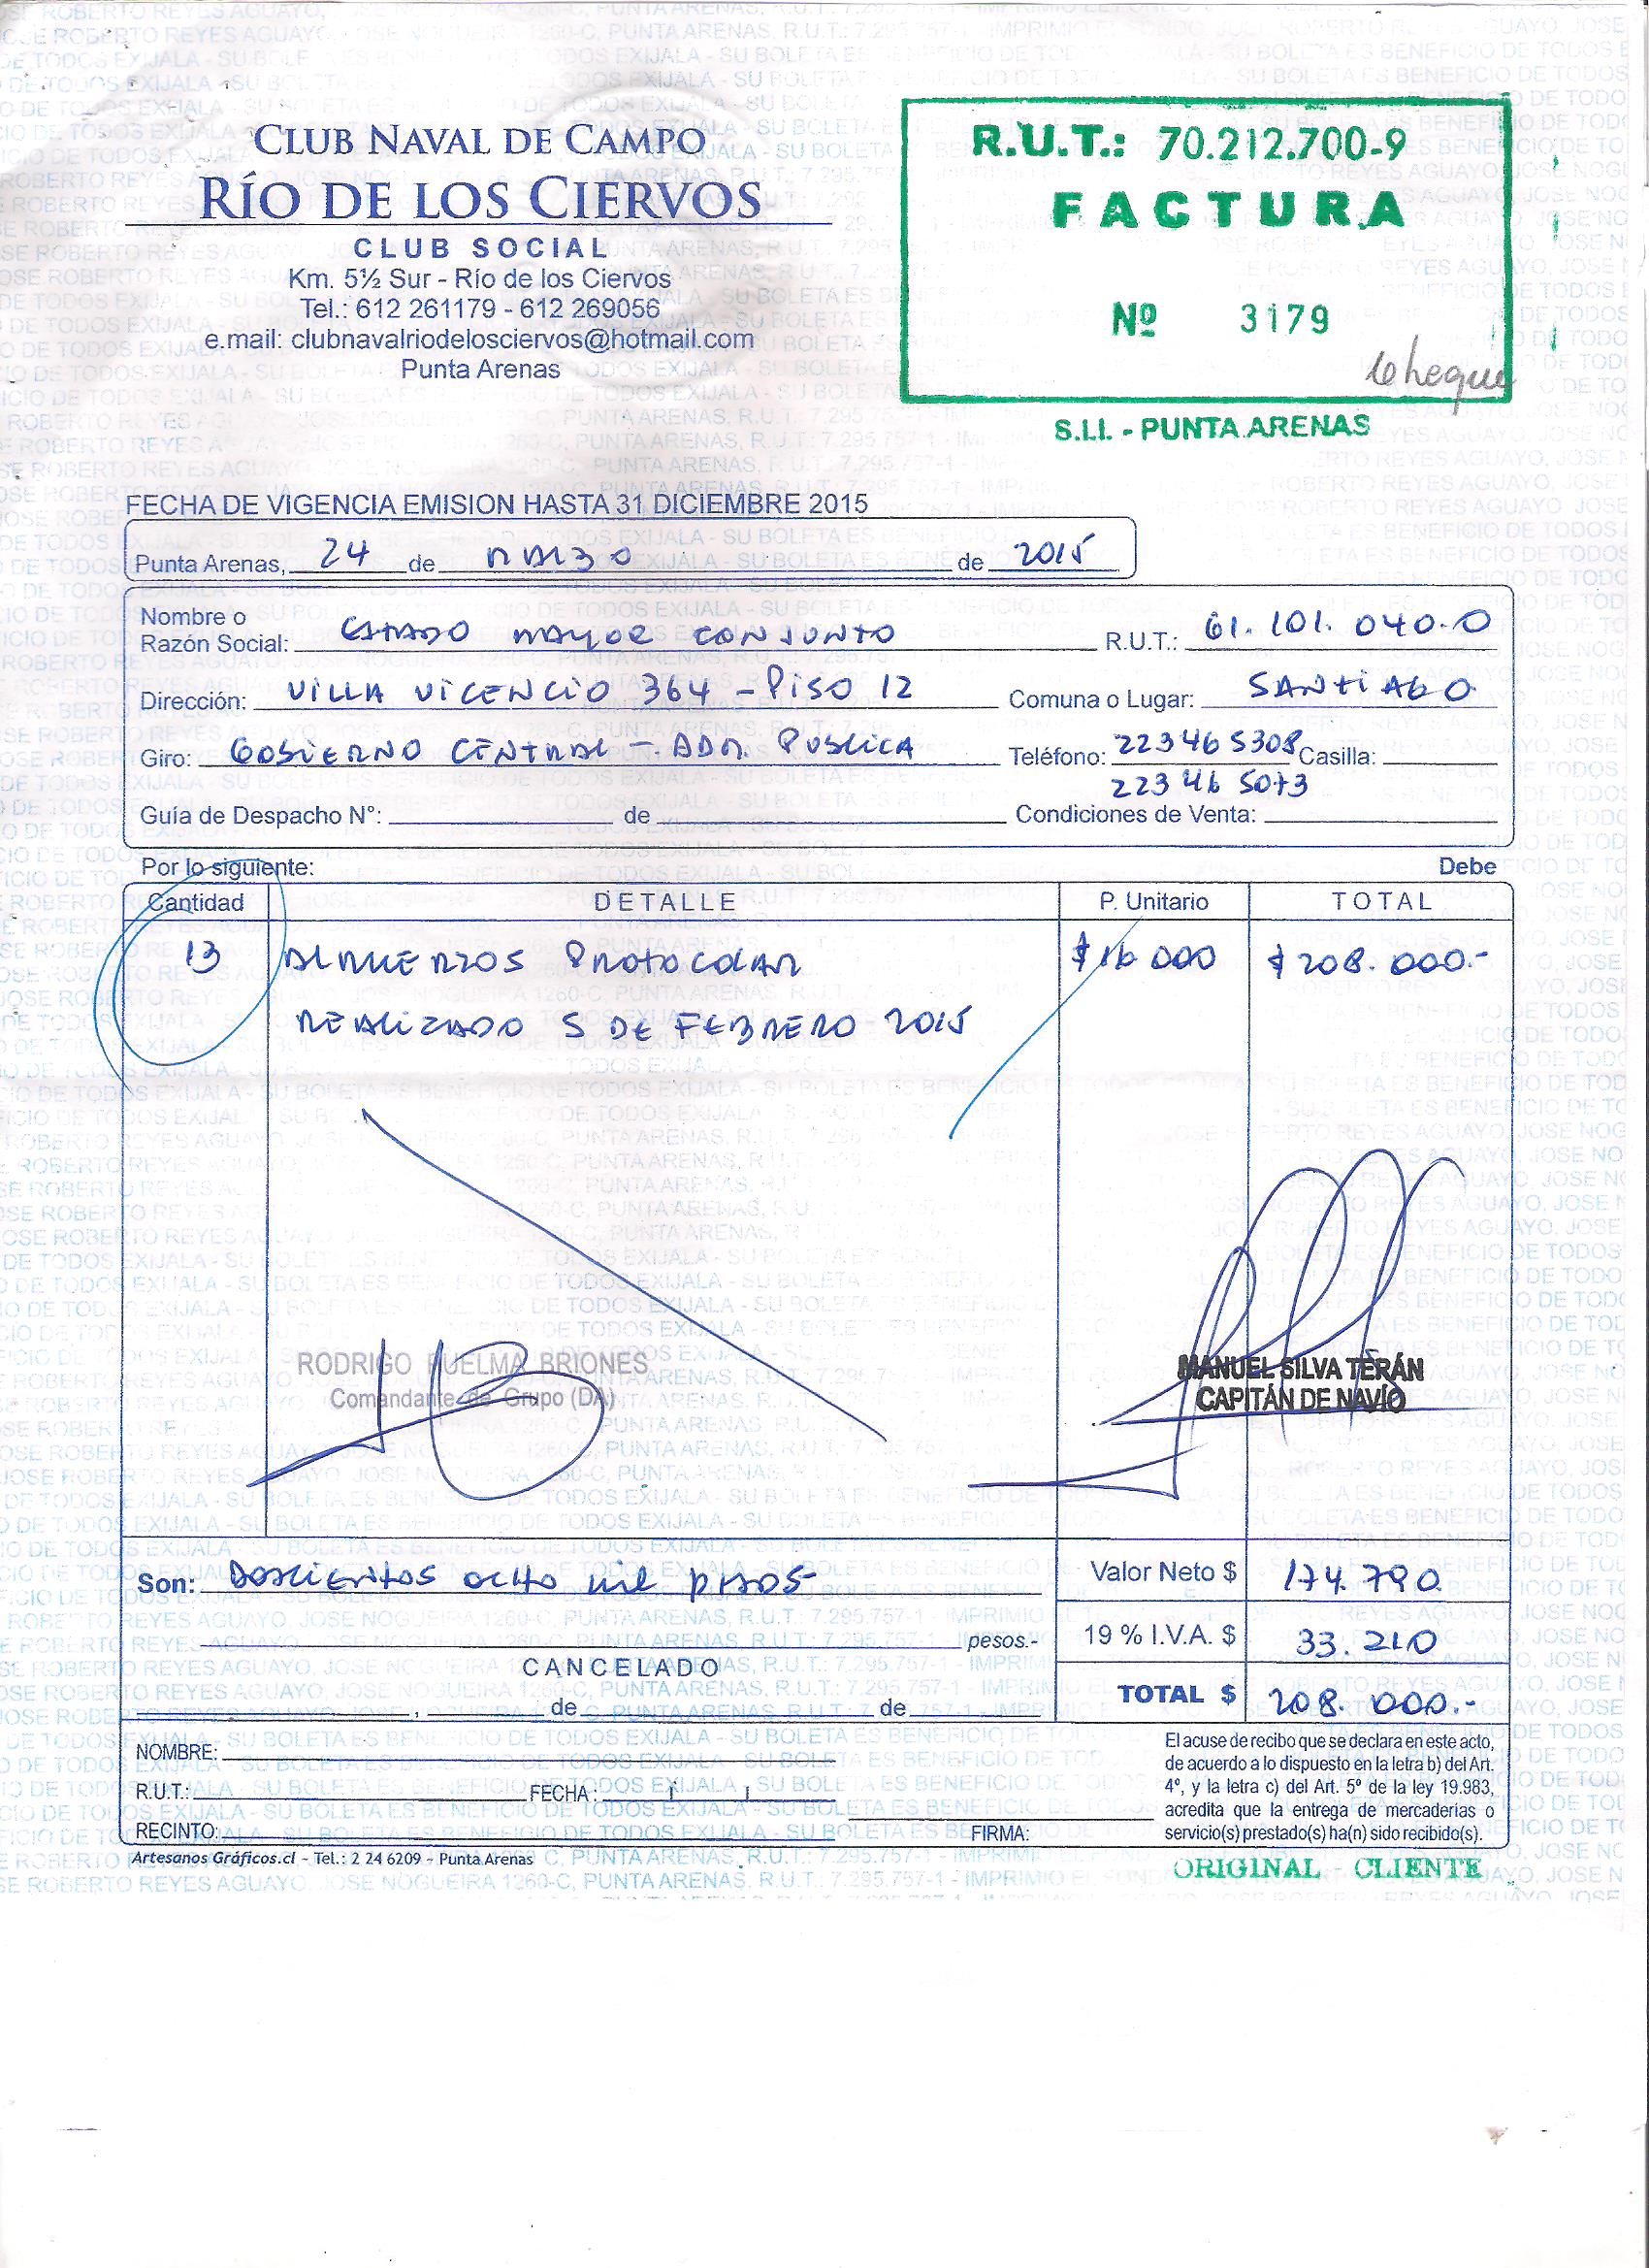 CLUB NAVAL DE CAMPO
RÍO DE LOS CIERVOS
CLUB SOCIAL
Km. 5½ Sur - Río de los Ciervos
Tel.: 612 261179 - 612 269056
e.mail: clubnavalriodelosciervos@hotmail.com
Punta Arenas
R.U.T.: 70.212.700-9
FACTURA
Nº 3179
Cheque
S.I.I. - PUNTA ARENAS
FECHA DE VIGENCIA EMISION HASTA 31 DICIEMBRE 2015
Punta Arenas, 24 de MARZO de 2015
Nombre o
Razón Social: ESTADO MAYOR CONJUNTO R.U.T.: 61.101.040-0
Dirección: VILLA VICENCIO 364 - PISO 12 Comuna o Lugar: SANTIAGO
Giro: GOBIERNO CENTRAL - ADM. PUBLICA Teléfono: 223465308 Casilla:
223465073
Guía de Despacho N°: de Condiciones de Venta:
Por lo siguiente: Debe
Cantidad DETALLE P. Unitario TOTAL
13 ALMUERZOS PROTOCOLAR $16 000 $208.000.-
REALIZADO 5 DE FEBRERO 2015
RODRIGO PUELMA BRIONES
Comandante de Grupo (DA)
MANUEL SILVA TERÁN
CAPITÁN DE NAVÍO
Son: Doscientos ocho mil pesos- Valor Neto $ 174.790
pesos.- 19 % I.V.A. $ 33.210
CANCELADO
, de de TOTAL $ 208.000.-
NOMBRE:
R.U.T.: FECHA: / /
RECINTO: FIRMA:
El acuse de recibo que se declara en este acto,
de acuerdo a lo dispuesto en la letra b) del Art.
4º, y la letra c) del Art. 5º de la ley 19.983,
acredita que la entrega de mercaderías o
servicio(s) prestado(s) ha(n) sido recibido(s).
Artesanos Gráficos.cl - Tel.: 2 24 6209 - Punta Arenas
ORIGINAL CLIENTE